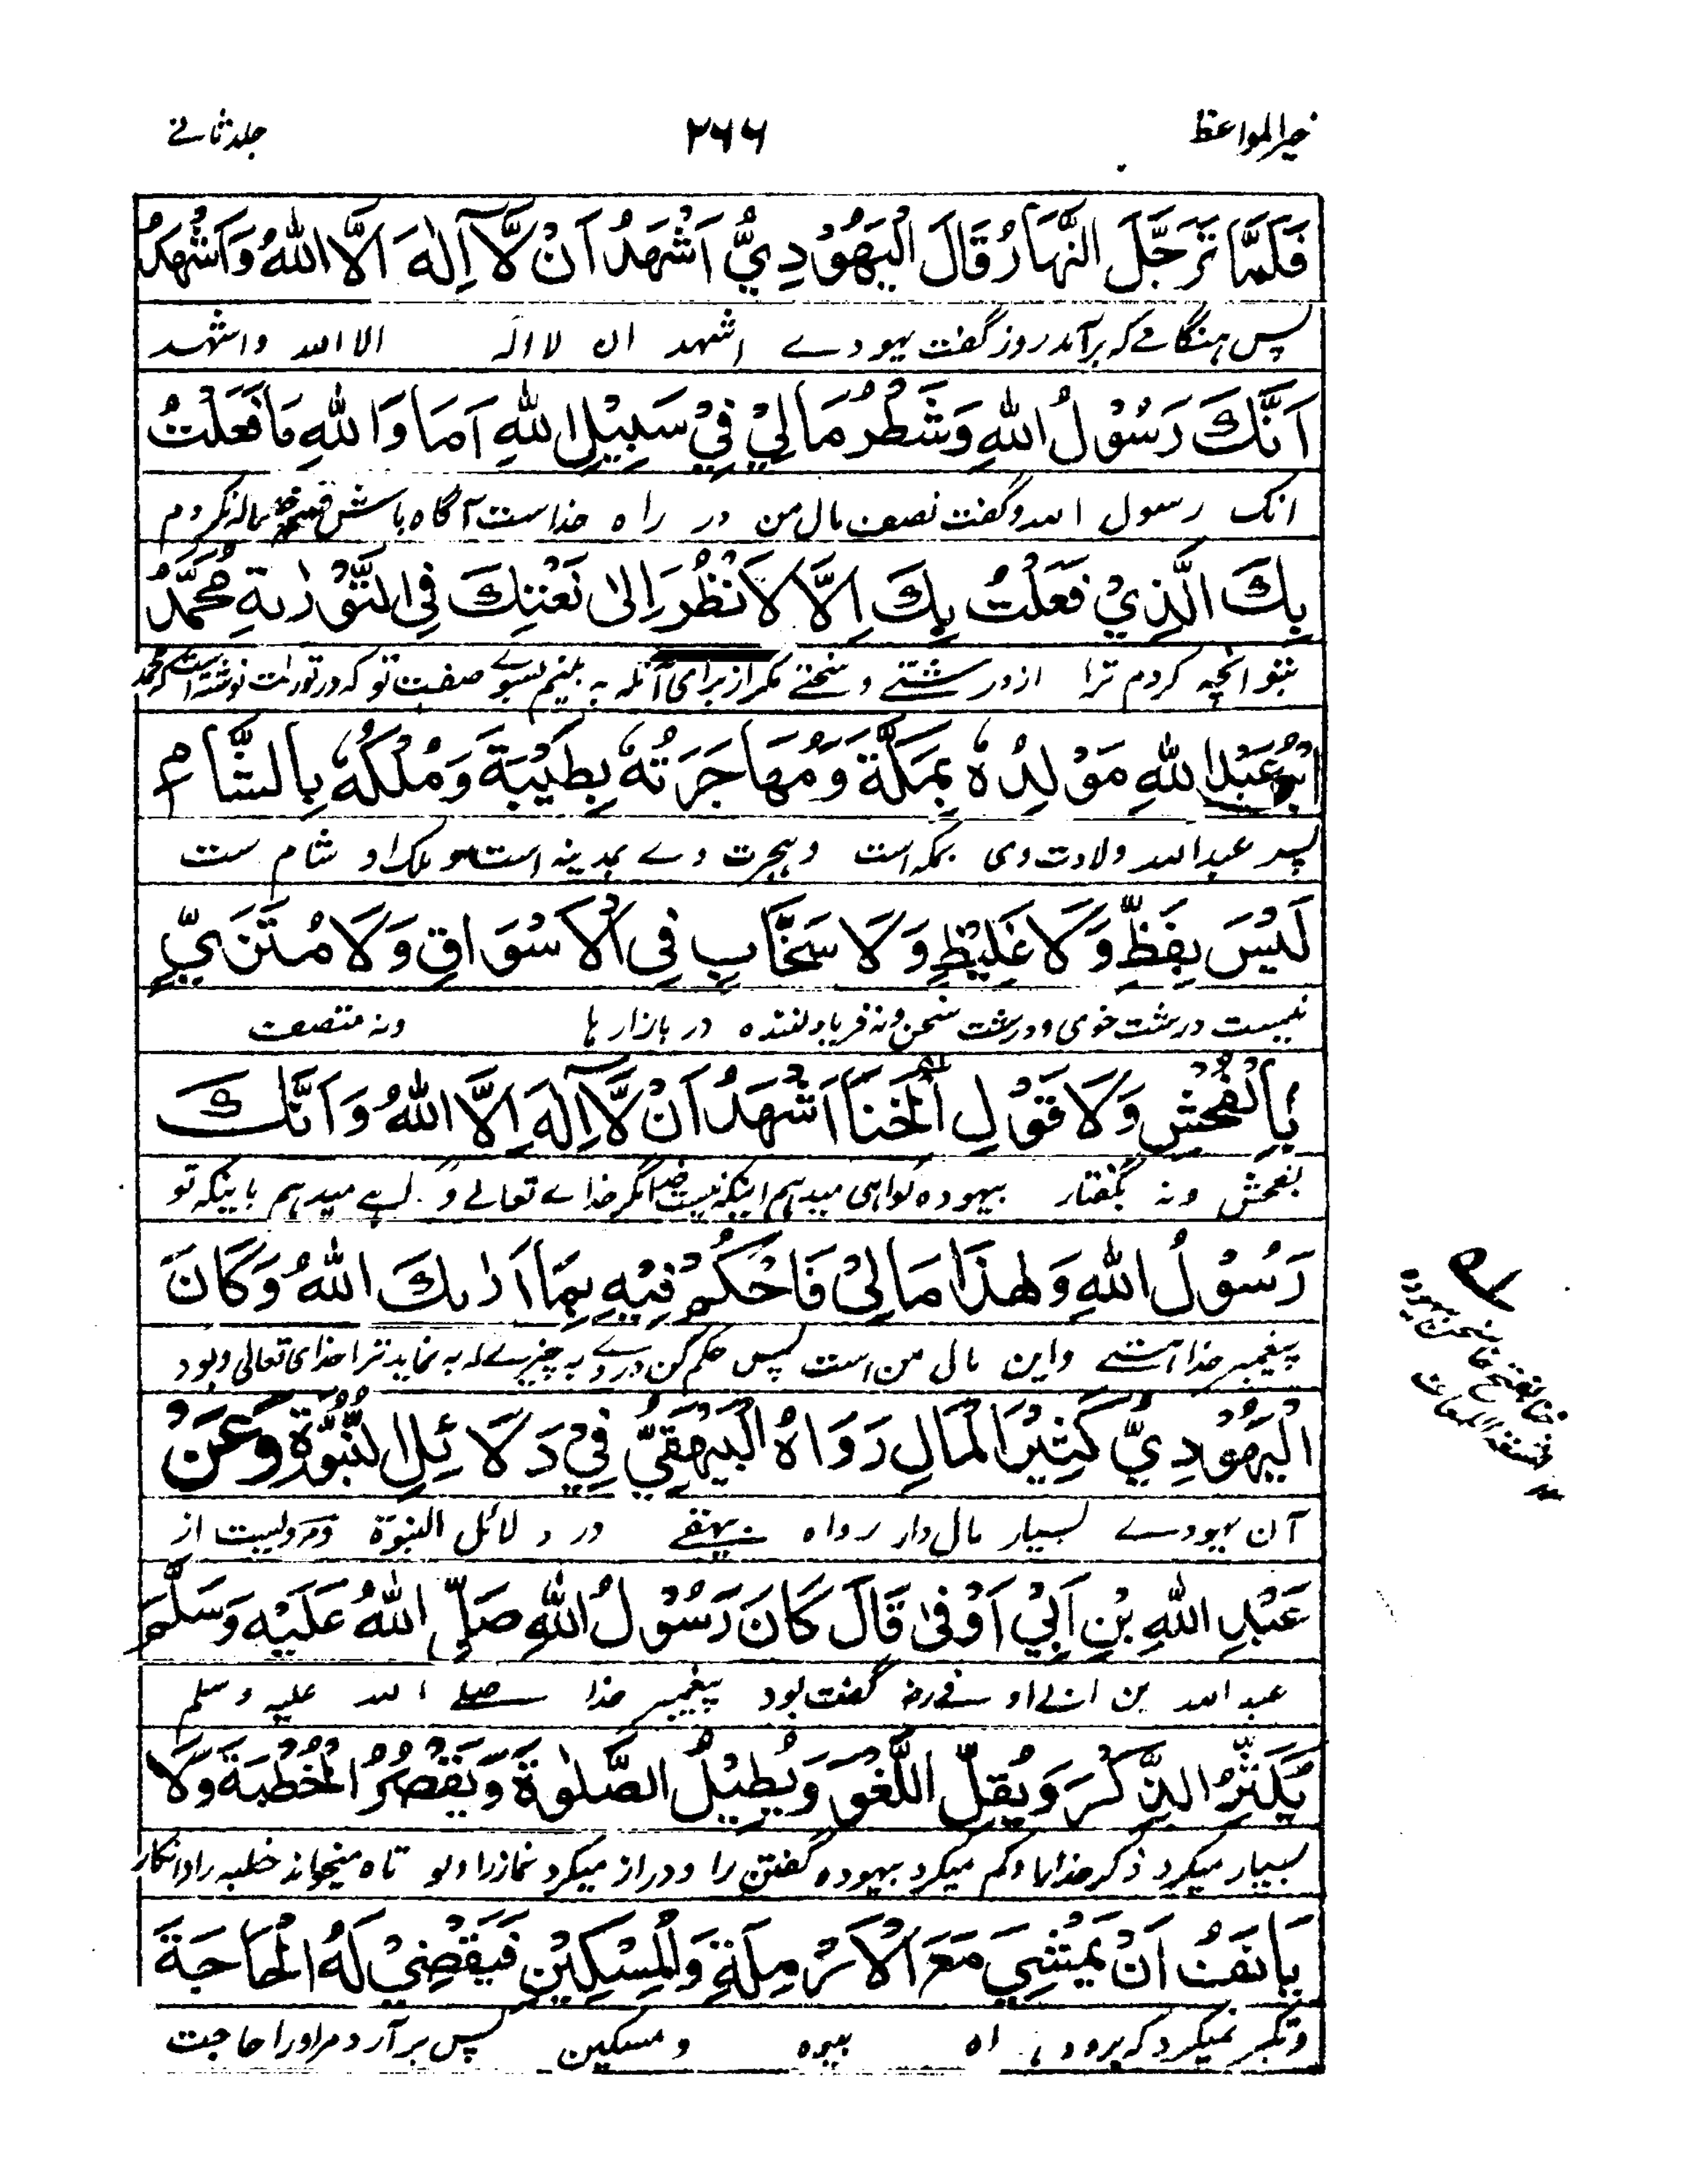 خیر المواعظ ۲۶۶ جلد ثانے
فَلَمَّا تَرَجَّلَ النَّهَارُ قَالَ الْيَهُوْدِيُّ اَشْهَدُ اَنْ لَّا اِلٰهَ اِلَّا اللهُ وَاَشْهَدُ
پس ہنگامے کہ برآمد روز گفت یہودے اشهد ان لا اله الا الله واشهد
اَنَّكَ رَسُوْلُ اللهِ وَشَطْرُ مَالِيْ فِيْ سَبِيْلِ اللهِ اَمَا وَاللهِ مَا فَعَلْتُ
انك رسول الله وگفت نصف مال من در راه خداست آگاه باش نکردم
بِكَ الَّذِيْ فَعَلْتُ بِكَ اِلَّا لِاَنْظُرَ اِلٰى نَعْتِكَ فِي التَّوْرٰىةِ مُحَمَّدُ
بتو آنچه کردم ترا از درشتے و سختے مگر از برای آنکه به بینم بسوے صفت تو که در تورات نوشته است که محمد
ابْنُ عَبْدِ اللهِ مَوْلِدُهٗ بِمَكَّةَ وَمُهَاجَرَتُهٗ بِطَيْبَةَ وَمُلْكُهٗ بِالشَّامِ
پسر عبد الله ولادت وی بمکه است وہجرت وے بمدینه است و ملک او شام ست
لَيْسَ بِفَظٍّ وَّلَا غَلِيْظٍ وَّلَا سَخَّابٍ فِي الْاَسْوَاقِ وَلَا مُتَزَيٍّ
نیست درشت خوی ودرشت سخن ونه فریاد کننده در بازار ہا ونه متصف
بِالْفُحْشِ وَلَا قَوْلِ الْخَنَا اَشْهَدُ اَنْ لَّا اِلٰهَ اِلَّا اللهُ وَاَنَّكَ
بفحش ونه بگفتار بیهوده گواہی میدہم اینکه نیست خدا مگر خداے تعالے و میدہم باینکه تو
رَسُوْلُ اللهِ وَهٰذَا مَالِيْ فَاحْكُمْ فِيْهِ بِمَا اَرٰىكَ اللهُ وَكَانَ
پیغمبر خدا ہستے واین مال من است پس حکم کن در وے به چیزے که به نماید ترا خدای تعالی وبود
الْيَهُوْدِيُّ كَثِيْرَ الْمَالِ رَوَاهُ الْبَيْهَقِيُّ فِيْ دَلَائِلِ النُّبُوَّةِ وَعَنْ
آن یہودے بسیار مال دار رواه بیہقے در دلائل النبوة ومرویست از
عَبْدِ اللهِ بْنِ اَبِيْ اَوْفٰى قَالَ كَانَ رَسُوْلُ اللهِ صَلَّى اللهُ عَلَيْهِ وَسَلَّمَ
عبد الله بن ابے اوفے رض گفت بود پیغمبر خدا صلے الله علیه وسلم
يُكْثِرُ الذِّكْرَ وَيُقِلُّ اللَّغْوَ وَيُطِيْلُ الصَّلٰوةَ وَيَقْصُرُ الْخُطْبَةَ وَلَا
بسیار میکرد ذکر خدا را وکم میکرد بیهوده گفتن را و دراز میکرد نماز را وکوتاه میخواند خطبه را
يَانَفُ اَنْ يَّمْشِيَ مَعَ الْاَرْمِلَةِ وَالْمِسْكِيْنِ فَيَقْضِيَ لَهُ الْحَاجَةَ
وتکبر نمیکرد که برود بیوه ومسکین پس برآرد مر اورا حاجت
خنا بفتح خا سخن بیهوده
اللمعات